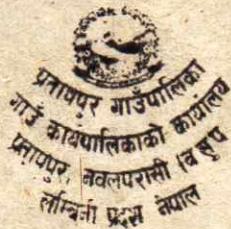 प्रतापपुर गाउँपालिका
गाउँ कार्यपालिकाको कार्यालय
प्रतापपुर, नवलपरासी (ब सु प
लुम्बिनी प्रदेश नेपाल